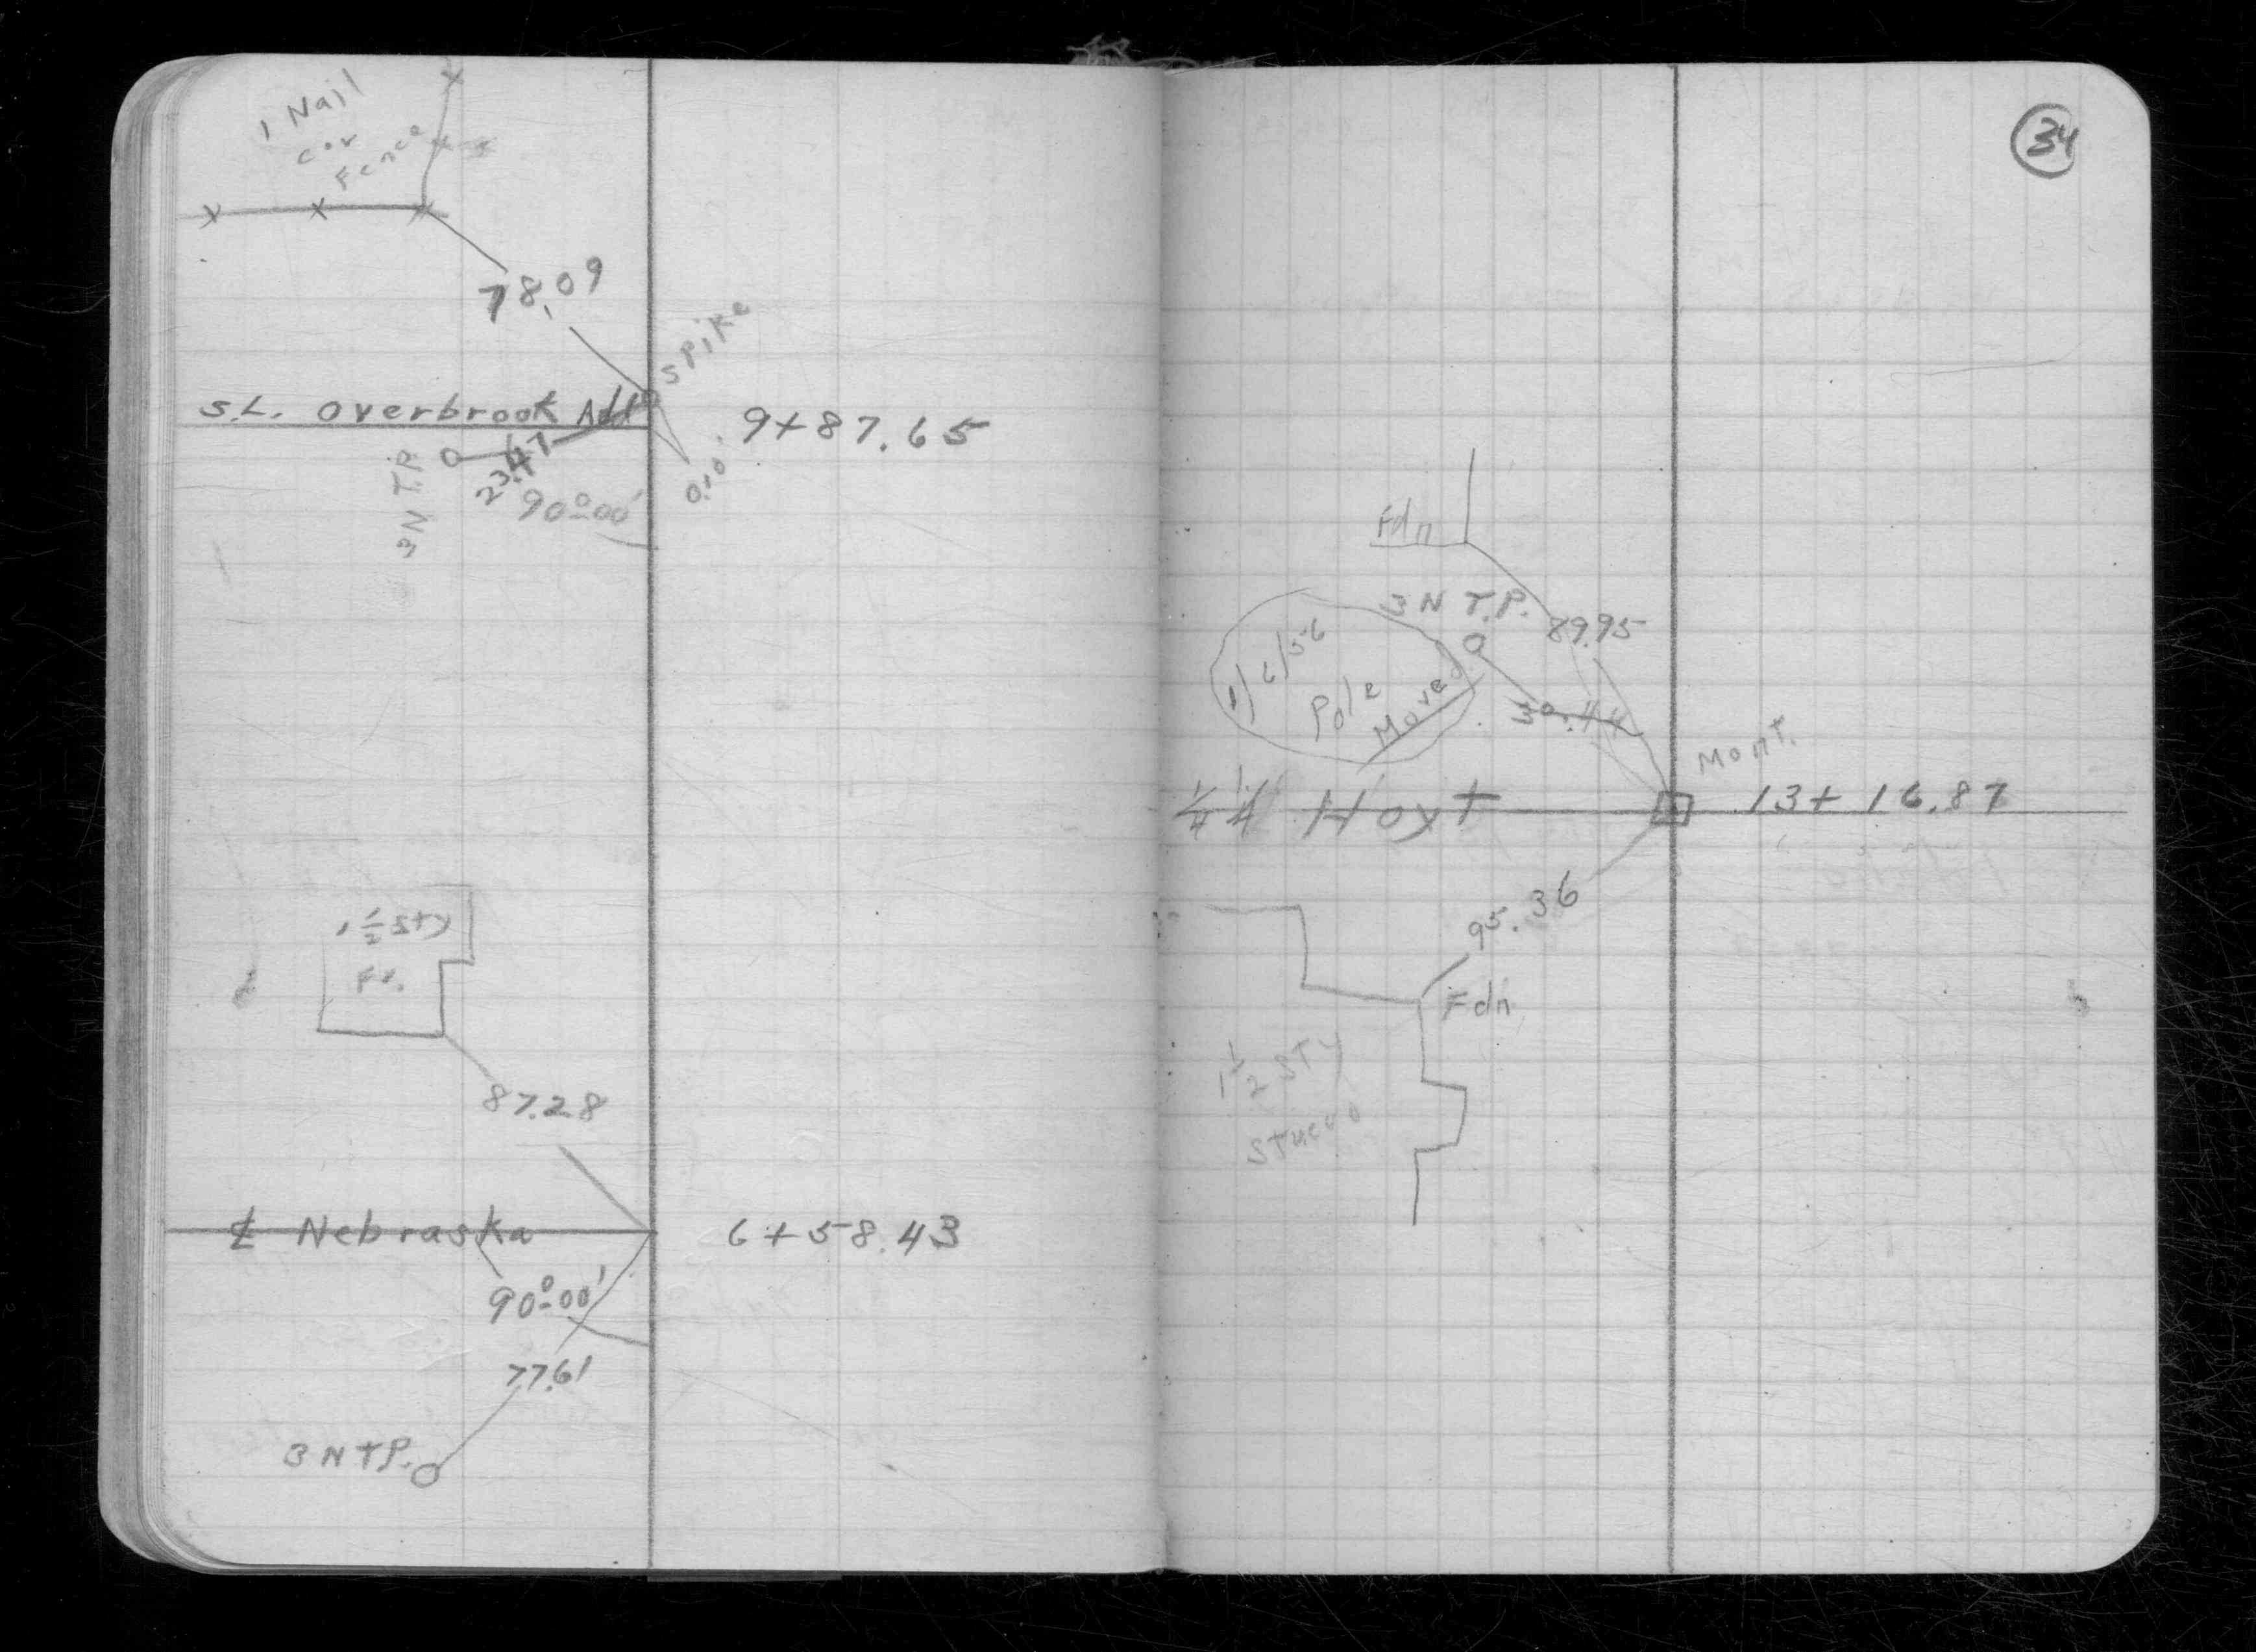 1 Nail
cor
Fence
78.09
Spike
S.L. Overbrook Add
9+87.65
3N T.P.
0.10
90°-00'
1½ Sty
Fr.
87.28
℄ Nebraska
6+58.43
90°-00'
77.61
3 N T.P.
34
Fdn
3 N T.P.
89.95
Pole
Moved
30.44
Mont.
¼ ¼ Hoyt
13+16.87
95.36
Fdn
1½ STY
Stucco